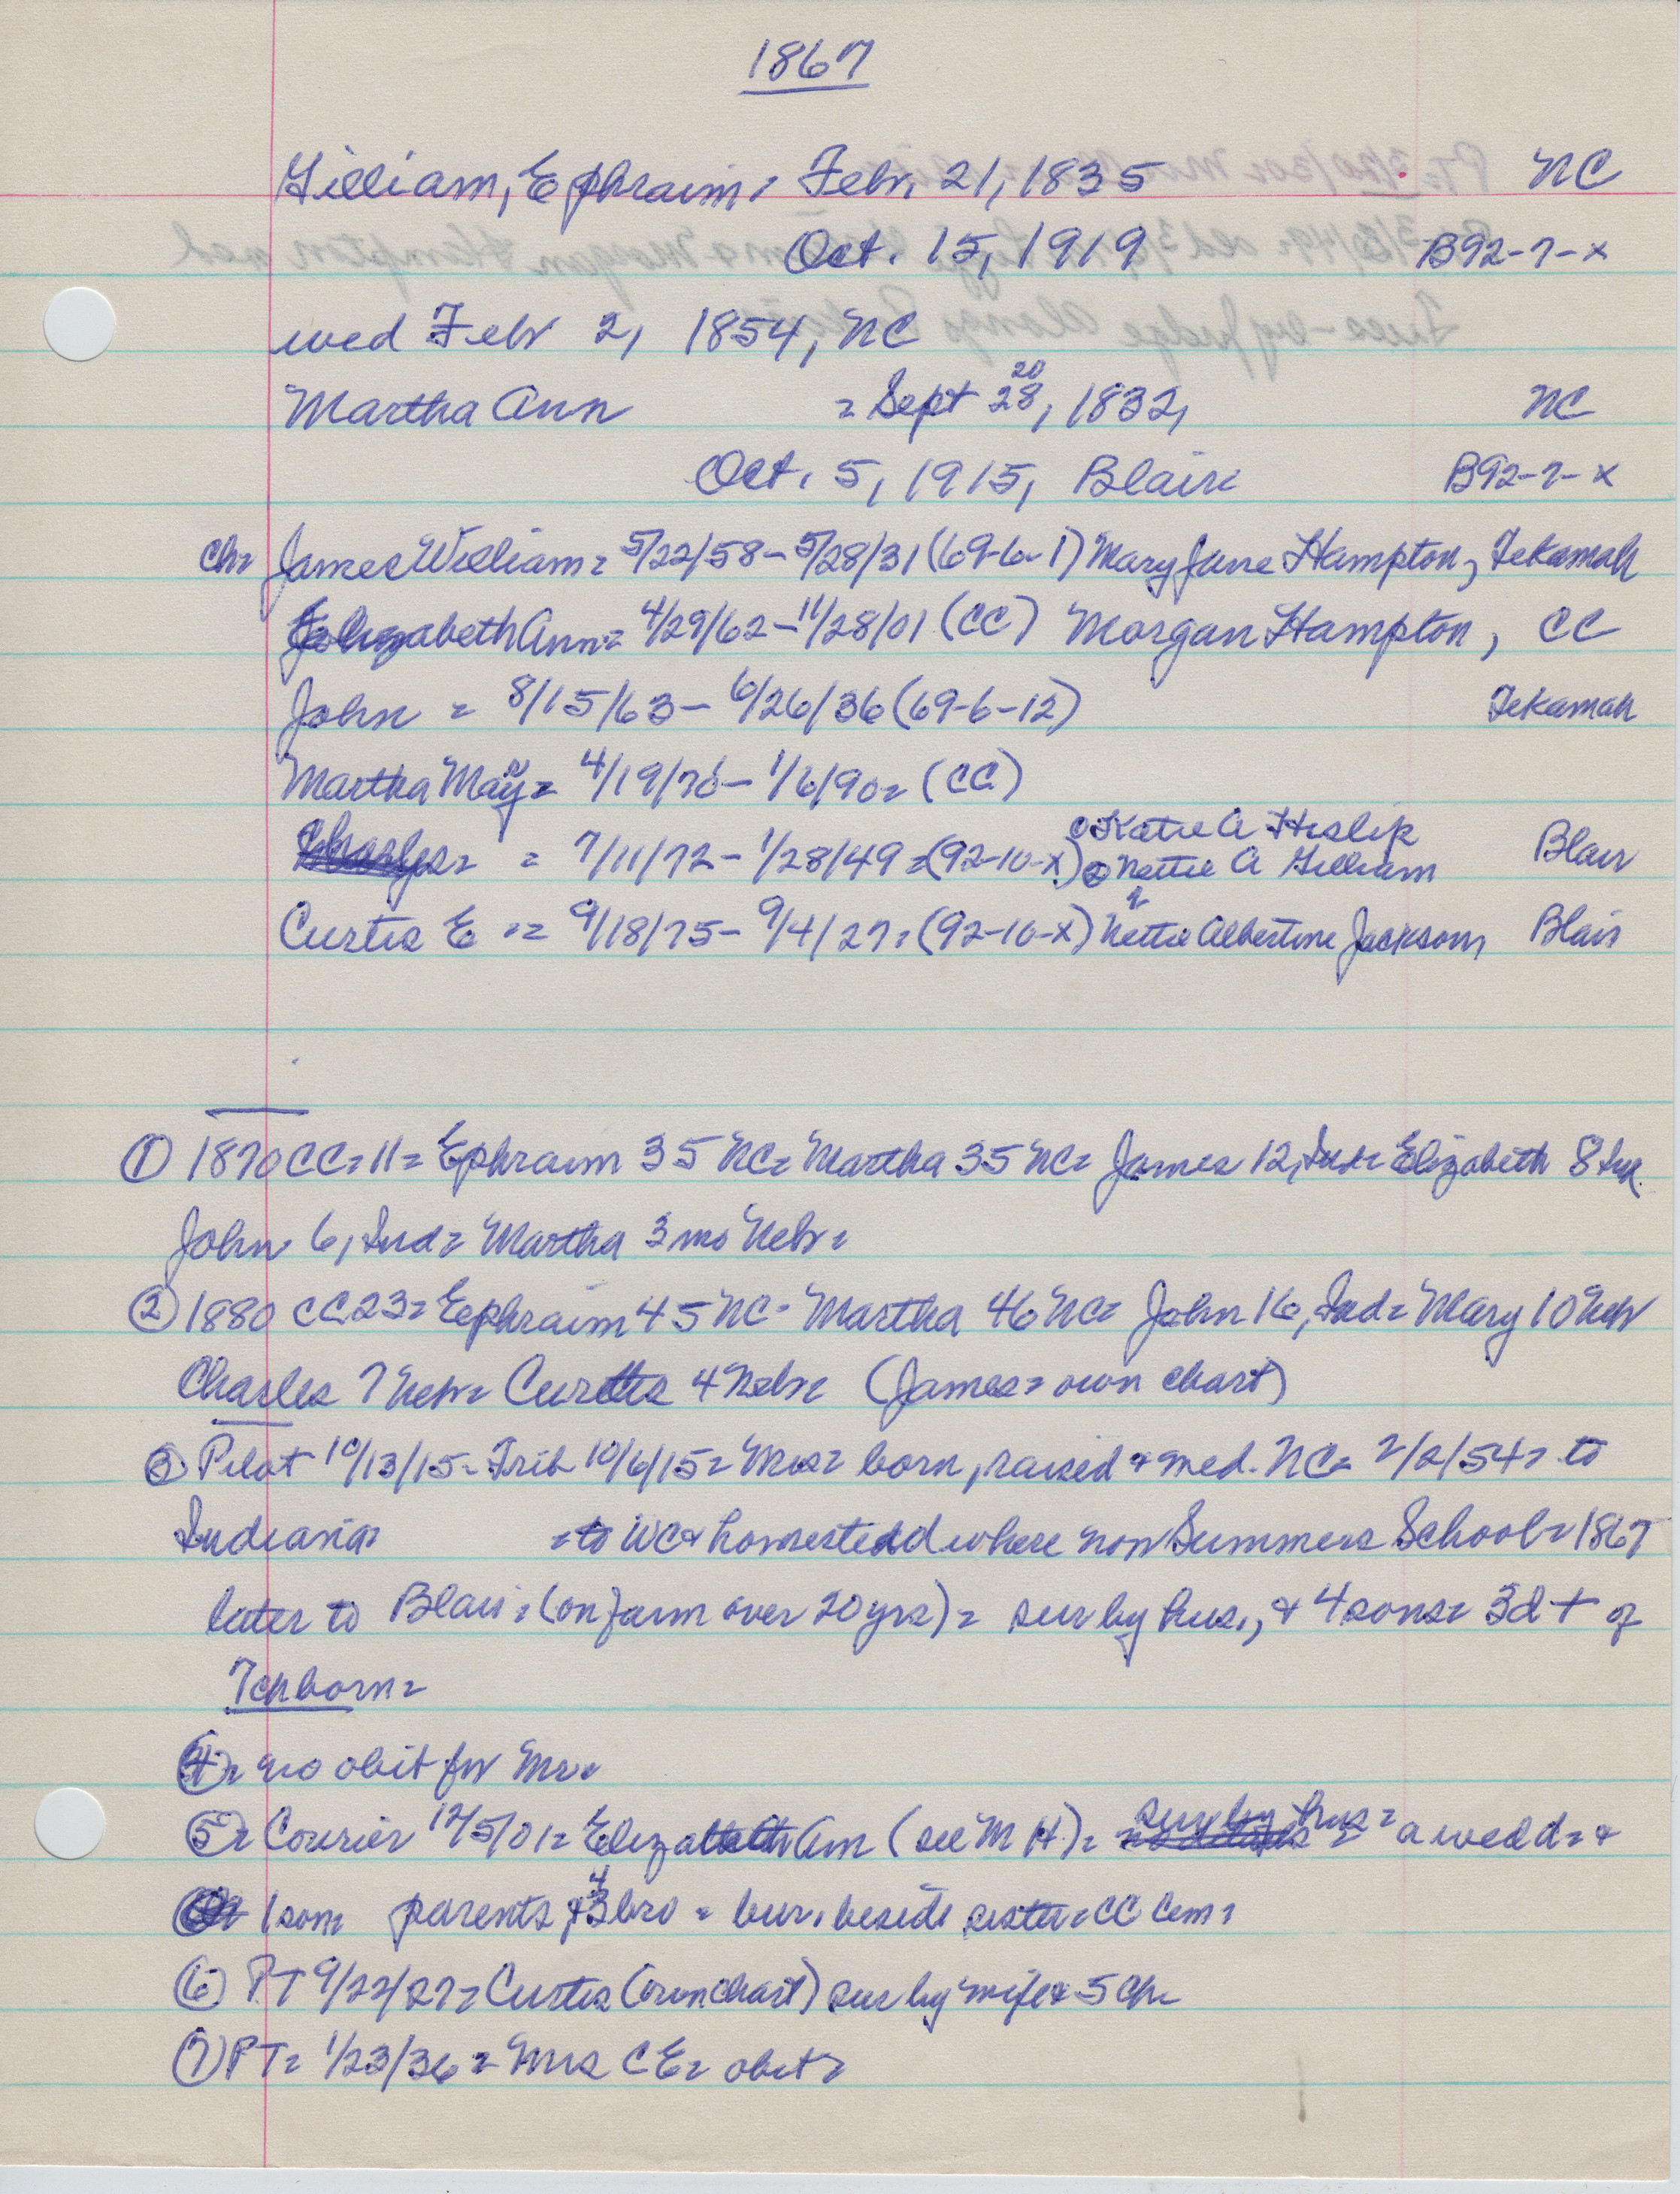 1867
Gilliam, Ephraim = Febr. 21, 1835 NC
Oct. 15, 1919 B92-7-x
wed Febr 2, 1854, NC
20
Martha Ann = Sept 28, 1832, NC
Oct. 5, 1915, Blair B92-7-x
Ch= James William = 5/22/58 - 5/28/31 (69-6-1) Mary Jane Hampton, Tekamah
Elizabeth Ann = 4/29/62 - 11/28/01 (CC) Morgan Hampton, CC
John = 8/15/63 - 6/26/36 (69-6-12) Tekamah
Martha May = 4/19/70 - 1/6/90 = (CC)
① Katie A Heslip
Charles = = 7/11/72 - 1/28/49 = (92-10-x) ② Nettie A Gilliam Blair
Curtis E = = 9/18/75 - 9/4/27 = (92-10-x) Nettie Albertine Jackson, Blair
① 1870 CC = 11 = Ephraim 35 NC = Martha 35 NC = James 12, Ind = Elizabeth 8 Ind.
John 6, Ind = Martha 3 mo Nebr =
② 1880 CC 23 = Ephraim 45 NC - Martha 46 NC = John 16, Ind = Mary 10 Nebr
Charles 7 Nebr = Curtis 4 Nebr = (James = own chart)
③ Pilot 10/13/15 = Trib 10/6/15 = Mrs = born, raised & med. NC = 2/2/54 = to
Indiana = = to WC & homestedd where now Summers School = 1867
later to Blair = (on farm over 20 yrs) = sur by hus., & 4 sons = 3d + of
7 ch born =
④ = no obit for Mr =
sur by hus =
⑤ = Courier 12/5/01 = Elizabeth Ann (see M H) = a wed d = &
4
1 son = parents & 3 bro = bur. beside sister = CC Cem =
⑥ PT 9/22/27 = Curtis (own chart) sur by wife & 5 ch =
⑦ PT = 1/23/36 = Mrs C E = obit =